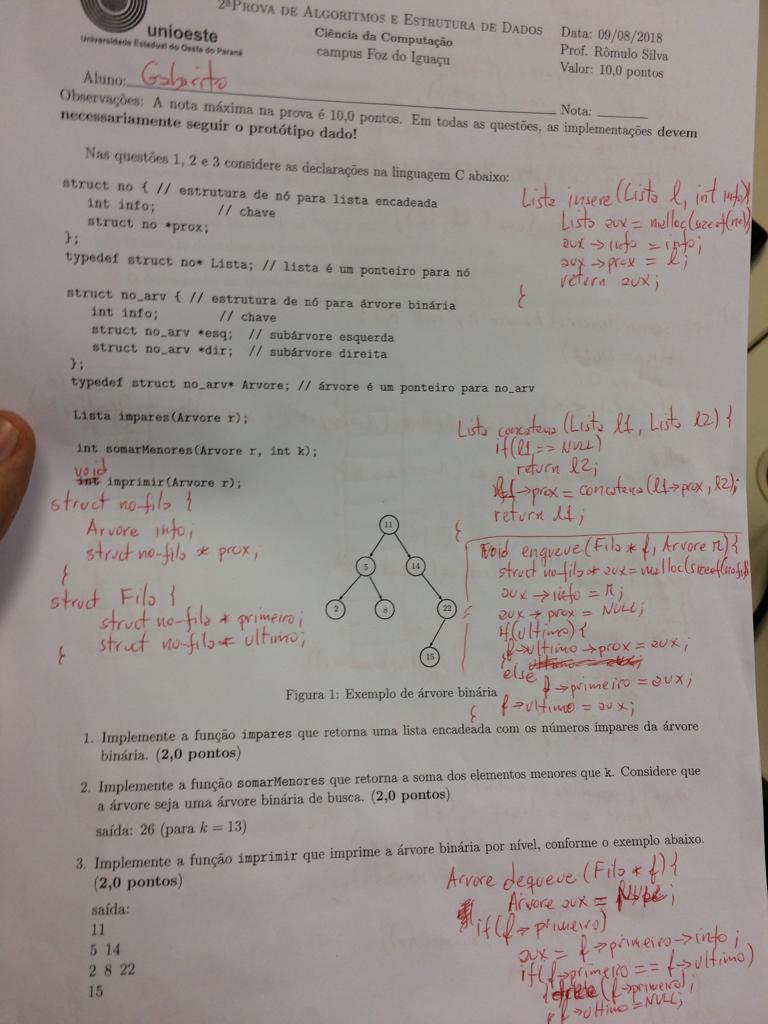 2ª PROVA DE ALGORITMOS E ESTRUTURA DE DADOS
Ciência da Computação
campus Foz do Iguaçu
Data: 09/08/2018
Prof. Rômulo Silva
Valor: 10,0 pontos
unioeste
Universidade Estadual do Oeste do Paraná
Aluno: Gabarito Nota:
Observações: A nota máxima na prova é 10,0 pontos. Em todas as questões, as implementações devem
necessariamente seguir o protótipo dado!
Nas questões 1, 2 e 3 considere as declarações na linguagem C abaixo:
struct no { // estrutura de nó para lista encadeada
int info; // chave
struct no *prox;
};
typedef struct no* Lista; // lista é um ponteiro para nó
struct no_arv { // estrutura de nó para árvore binária
int info; // chave
struct no_arv *esq; // subárvore esquerda
struct no_arv *dir; // subárvore direita
};
typedef struct no_arv* Arvore; // árvore é um ponteiro para no_arv
Lista impares(Arvore r);
int somarMenores(Arvore r, int k);
void
int imprimir(Arvore r);
Lista insere(Lista l, int info)
Lista aux = malloc(sizeof(no))
aux->info = info;
aux->prox = l;
return aux;
}
Lista concatena(Lista l1, Lista l2) {
if(l1 == NULL)
return l2;
l1->prox = concatena(l1->prox, l2);
return l1;
}
struct no-fila {
Arvore info;
struct no-fila * prox;
}
struct Fila {
struct no-fila * primeiro;
struct no-fila * ultimo;
}
void enqueue(Fila * f, Arvore r){
struct no-fila* aux = malloc(sizeof(
aux->info = r;
aux->prox = NULL;
if(ultimo){
f->ultimo->prox = aux;
else
f->primeiro = aux;
f->ultimo = aux;
}
11
5
14
2
8
22
15
Figura 1: Exemplo de árvore binária
1. Implemente a função impares que retorna uma lista encadeada com os números ímpares da árvore
binária. (2,0 pontos)
2. Implemente a função somarMenores que retorna a soma dos elementos menores que k. Considere que
a árvore seja uma árvore binária de busca. (2,0 pontos)
saída: 26 (para k = 13)
3. Implemente a função imprimir que imprime a árvore binária por nível, conforme o exemplo abaixo.
(2,0 pontos)
saída:
11
5 14
2 8 22
15
Arvore dequeue(Fila * f) {
Arvore aux = NULL;
if(f->primeiro)
aux = f->primeiro->info;
if(f->primeiro == f->ultimo)
(f->primeiro);
f->ultimo = NULL;